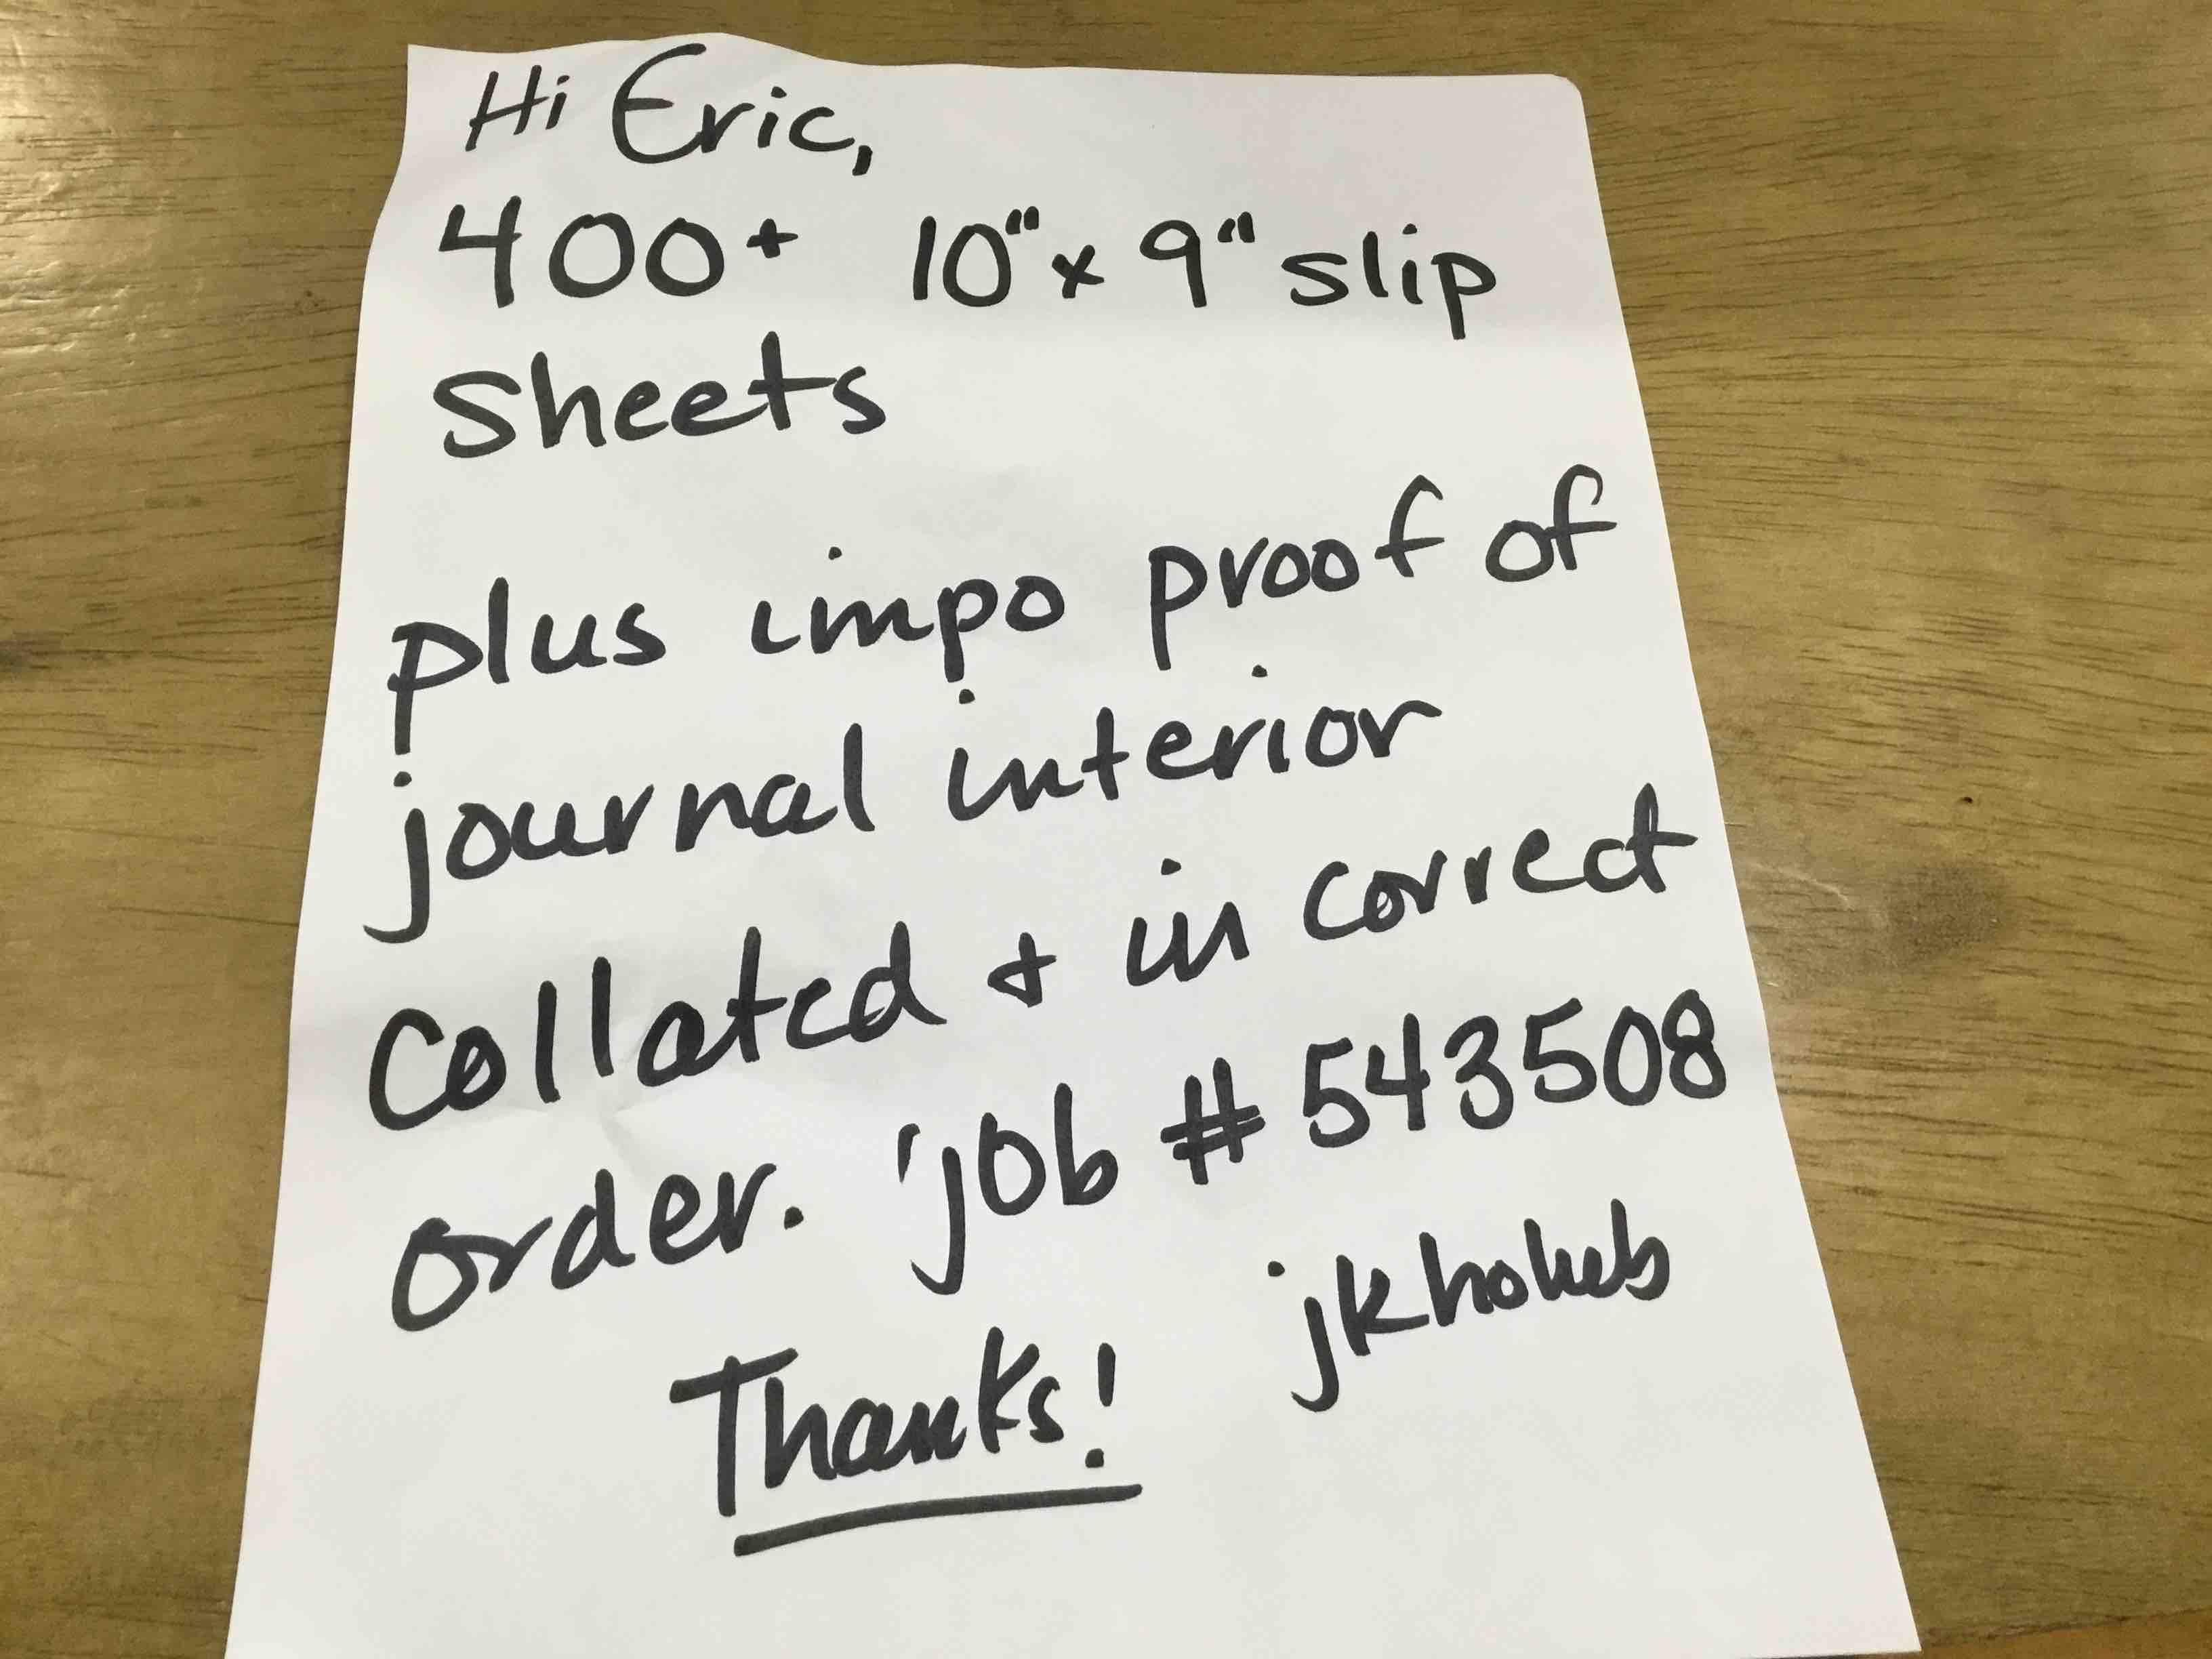 Hi Eric,
400+ 10" x 9" slip
sheets
plus impo proof of
journal interior
Collated + in correct
order. job # 543508
jkholub
Thanks!